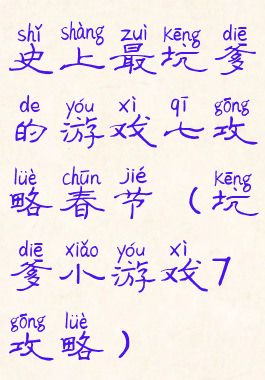 shǐ shàng zuì kēng diē
史上最坑爹
de yóu xì qī gōng
的游戏七攻
lüè chūn jié kēng
略春节（坑
diē xiǎo yóu xì
爹小游戏7
gōng lüè
攻略）